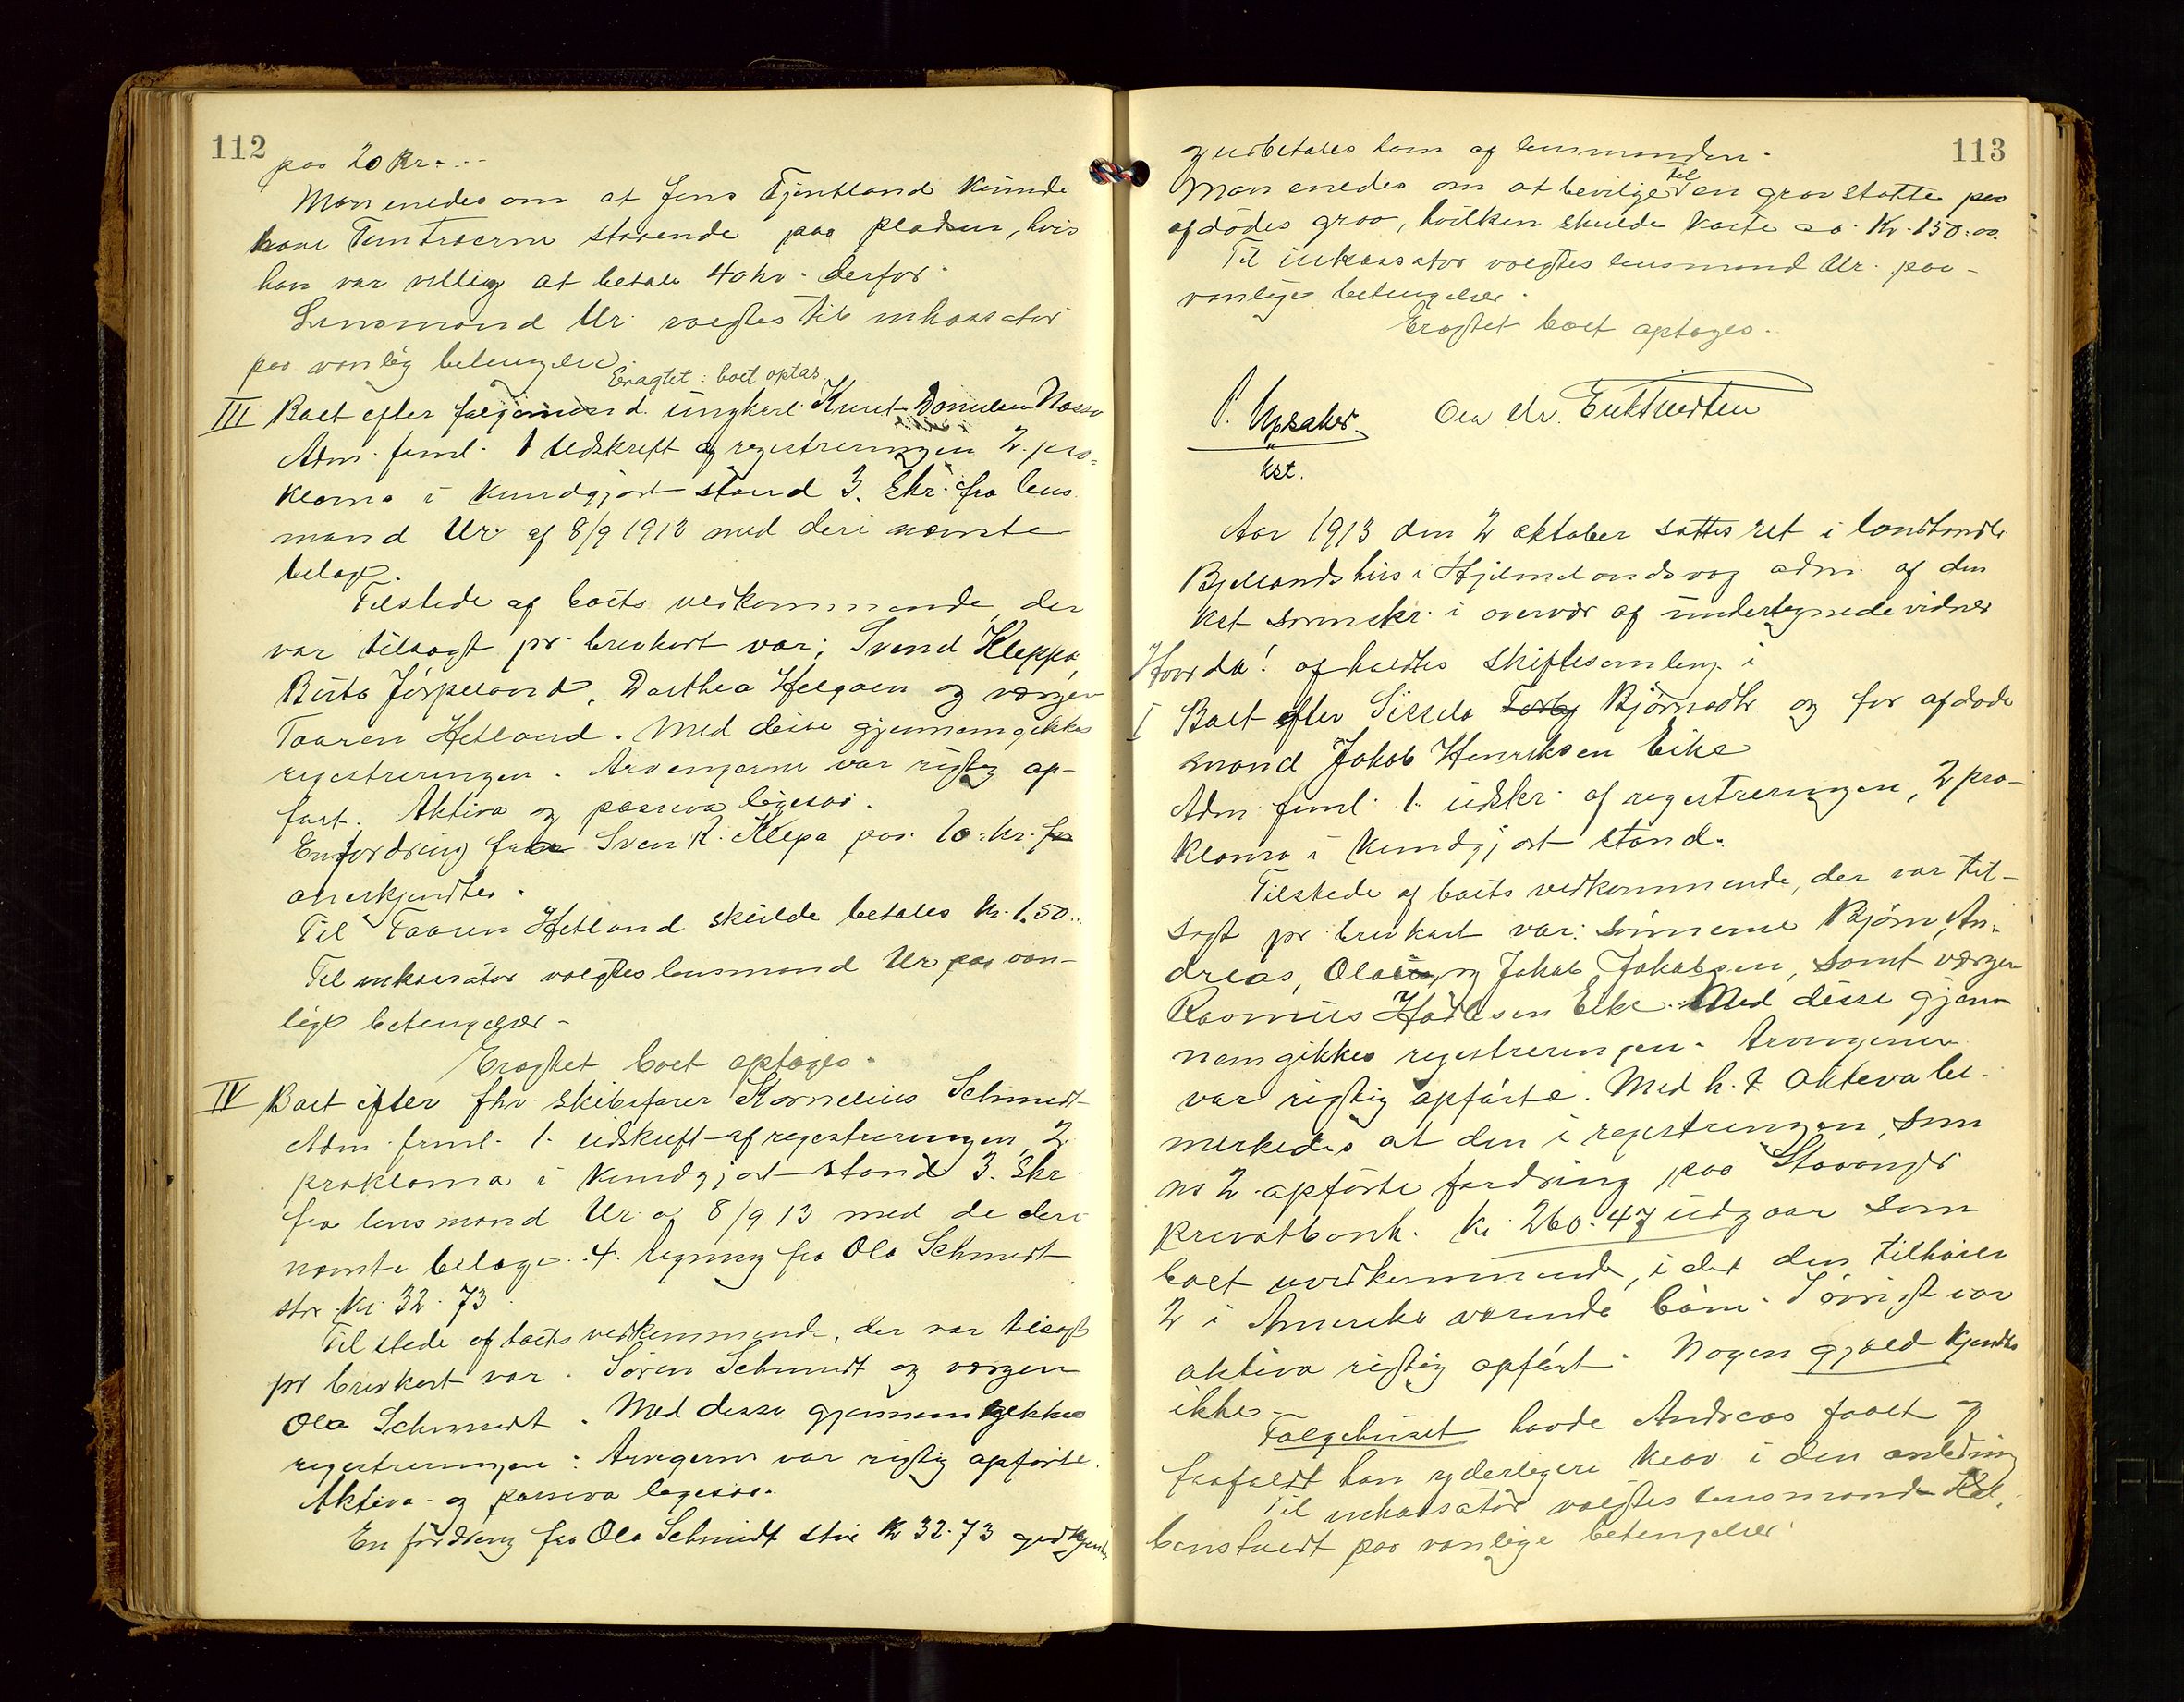 112
paa 20 kr. . . .
Man enedes om at Jens Tjentland kunde
have Tømtræerne staaende paa pladsen, hvis
han var villig at betale 40 kr. derfor.
Lensmand Ur valgtes til inkassator
paa vanlig betingelse.
Eragtet: boet optas
III Boet efter følgemand ungkarl Knut Danielsen Næsse
Adm. freml. 1 Udskrift af registreringen 2. pro-
klama i kundgjort stand 3. Skr. fra lens
mand Ur af 8/9 1913 med deri nævnte
belag.
Tilstede af boets vedkommende, der
var tilsagt pr. brevkort var; Svend Kleppa,
Berta Jørpeland, Darthea Helgøen og værgen
Taaren Hetland. Med disse gjennemgikkes
registreringen. Arvingerne var rigtig op-
ført. Aktiva og passiva ligesaa.
En fordring fra Sven K. Klepa paa 20. kr. fra
anerkjendtes.
Til Taaren Hetland skulde betales kr. 1.50..
Til inkassator valgtes lensmand Ur paa van-
lige betingelser.
Eragtet boet optages.
IV Boet efter fhv. skibsfører Kornelius Schmidt
Adm. freml. 1. udskrift af registreringen, 2
proklama i kundgjort stand 3. Skr
fra lensmand Ur af 8/9 13 med de deri
nævnte belage. 4. regning fra Ola Schmidt
stor kr. 32.73.
Tilstede af boets vedkommende, der var tilsagt
pr brevkort var. Søren Schmidt og værgen
Ola Schmidt. Med disse gjennemgikkes
registreringen. Arvingerne var rigtig opførte.
Aktiva og passiva ligesaa.
En fordring fra Ola Schmidt stor kr 32.73 godkjendtes
113
og udbetales ham af lensmanden.
Man enedes om at bevilge til en gravstøtte paa
afdødes grav, hvilken skulde koste ca. kr. 150.00.
Til inkassator valgtes lensmand Ur. paa
vanlige betingelser.
Eragtet boet optages.
P. Upsaker
kst.
Aar 1913 den 2 oktober sattes ret i landhandler
Bjellands hus i Hjelmelandsvaag adm. af den
kst sorenskr. i overvær af undertegnede vidner
Hvorda! afholdtes skiftesamling i
I Boet efter Sissela Bjørnsdtr og før afdøde
mand Jakob Henriksen Eike
Adm. freml. 1. udskr. af registreringen, 2 pro-
klama i kundgjort stand.
Tilstede af boets vedkommende, der var til-
sagt pr brevkort var: sønnerne Bjørn, An-
dreas, Ola og Jakob Jakobsen, samt værgen
Rasmus Eike. Med disse gjen-
nemgikkes registreringen. Arvingerne
var rigtig opførte. Med h. t. aktiva be-
merkedes at den i registreringen, som
no 2 opførte fordring paa Stavanger
privatbank. kr. 260.47 udgaar som
boet uvedkommende, i det den tilhører
2 i Amerika værende børn. I øvrigt var
aktiva rigtig opført. Nogen gjæld kjendtes
ikke.
Følgehuset havde Andreas faaet og
frafaldt han yderligere krav i den anledning
Til inkassator valgtes lensmand Hal-
benstvedt paa vanlige betingelser